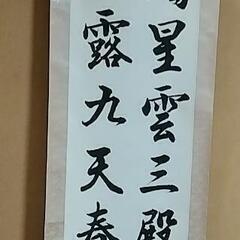 星雲三殿
露九天春